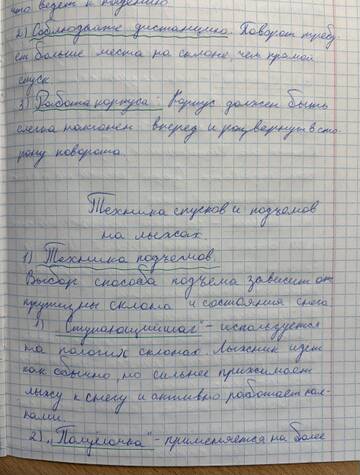 что ведет к падению.
2) Соблюдайте дистанцию. Поворот требу-
ет больше места на склоне, чем прямой
спуск
3) Работа корпуса: Корпус должен быть
слегка наклонен вперед и развернут в сто-
рону поворота.
Техника спусков и подъемов
на лыжах.
1) Техника подъемов.
Выбор способа подъема зависит от
крутизны склона и состояния снега
1) "Ступающий шаг" - используется
на пологих склонах. Лыжник идет
как обычно, но сильнее прижимает
лыжу к снегу и активно работает пал-
ками.
2) "Полуелочка" - применяется на более